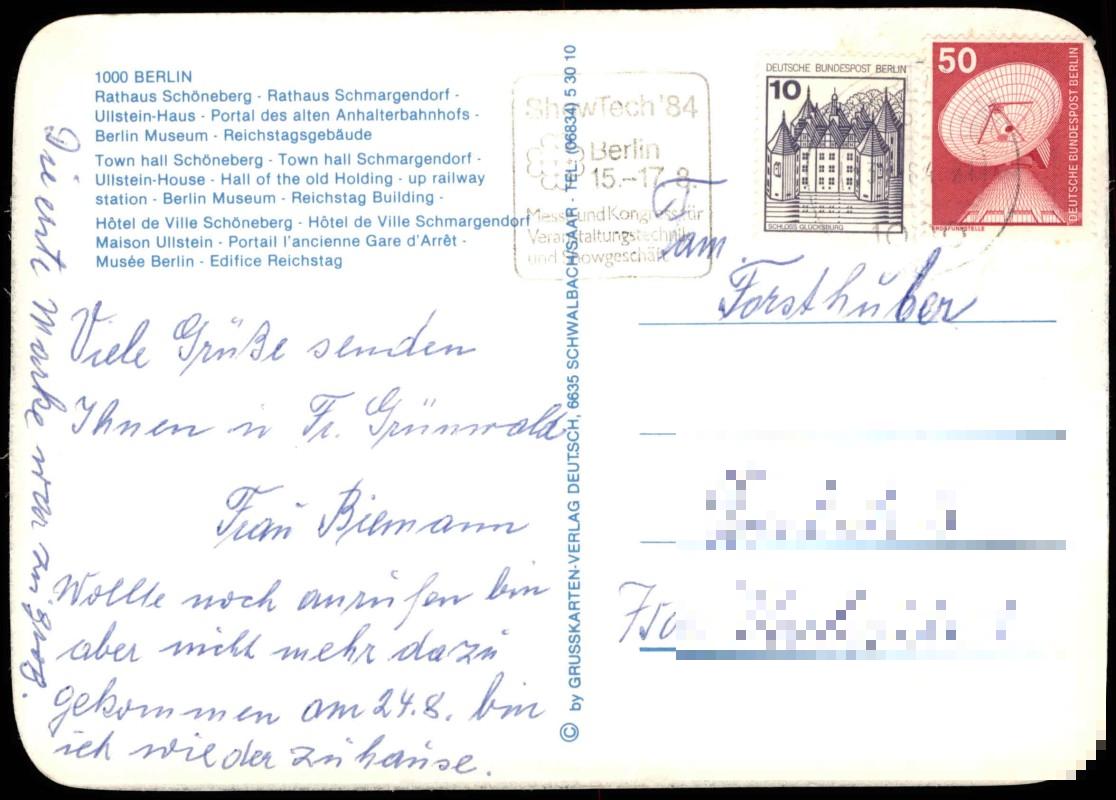 1000 BERLIN
Rathaus Schöneberg - Rathaus Schmargendorf -
Ullstein-Haus - Portal des alten Anhalterbahnhofs -
Berlin Museum - Reichstagsgebäude
Town hall Schöneberg - Town hall Schmargendorf -
Ullstein-House - Hall of the old Holding - up railway
station - Berlin Museum - Reichstag Building -
Hôtel de Ville Schöneberg - Hôtel de Ville Schmargendorf
Maison Ullstein - Portail l'ancienne Gare d'Arrêt -
Musée Berlin - Edifice Reichstag
Viele Grüße senden
Ihnen u Fr. Grünwald
Frau Biemann
Wollte noch anrufen bin
aber nicht mehr dazu
gekommen am 24.8. bin
ich wieder zuhause.
Die erste Marke war zu
© by GRUSSKARTEN-VERLAG DEUTSCH, 6635 SCHWALBACH/SAAR - TEL. (06834) 5 30 10
ShowTech '84
Berlin
15.–17.8.
Messe und Kongress für
Veranstaltungstechnik
und Showgeschäft
DEUTSCHE BUNDESPOST BERLIN
10
SCHLOSS GLÜCKSBURG
50
DEUTSCHE BUNDESPOST BERLIN
ERDEFUNKSTELLE
Fam
Forsthuber